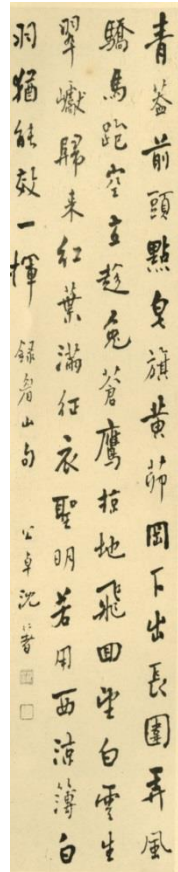 青蓋前頭點皂旗黃茆岡下出長圍弄風
驕馬跑空立趁兔蒼鷹掠地飛回望白雲生
翠巘歸来紅葉滿征衣聖明若用西涼簿白
羽猶能效一揮 録眉山句 公卓沈